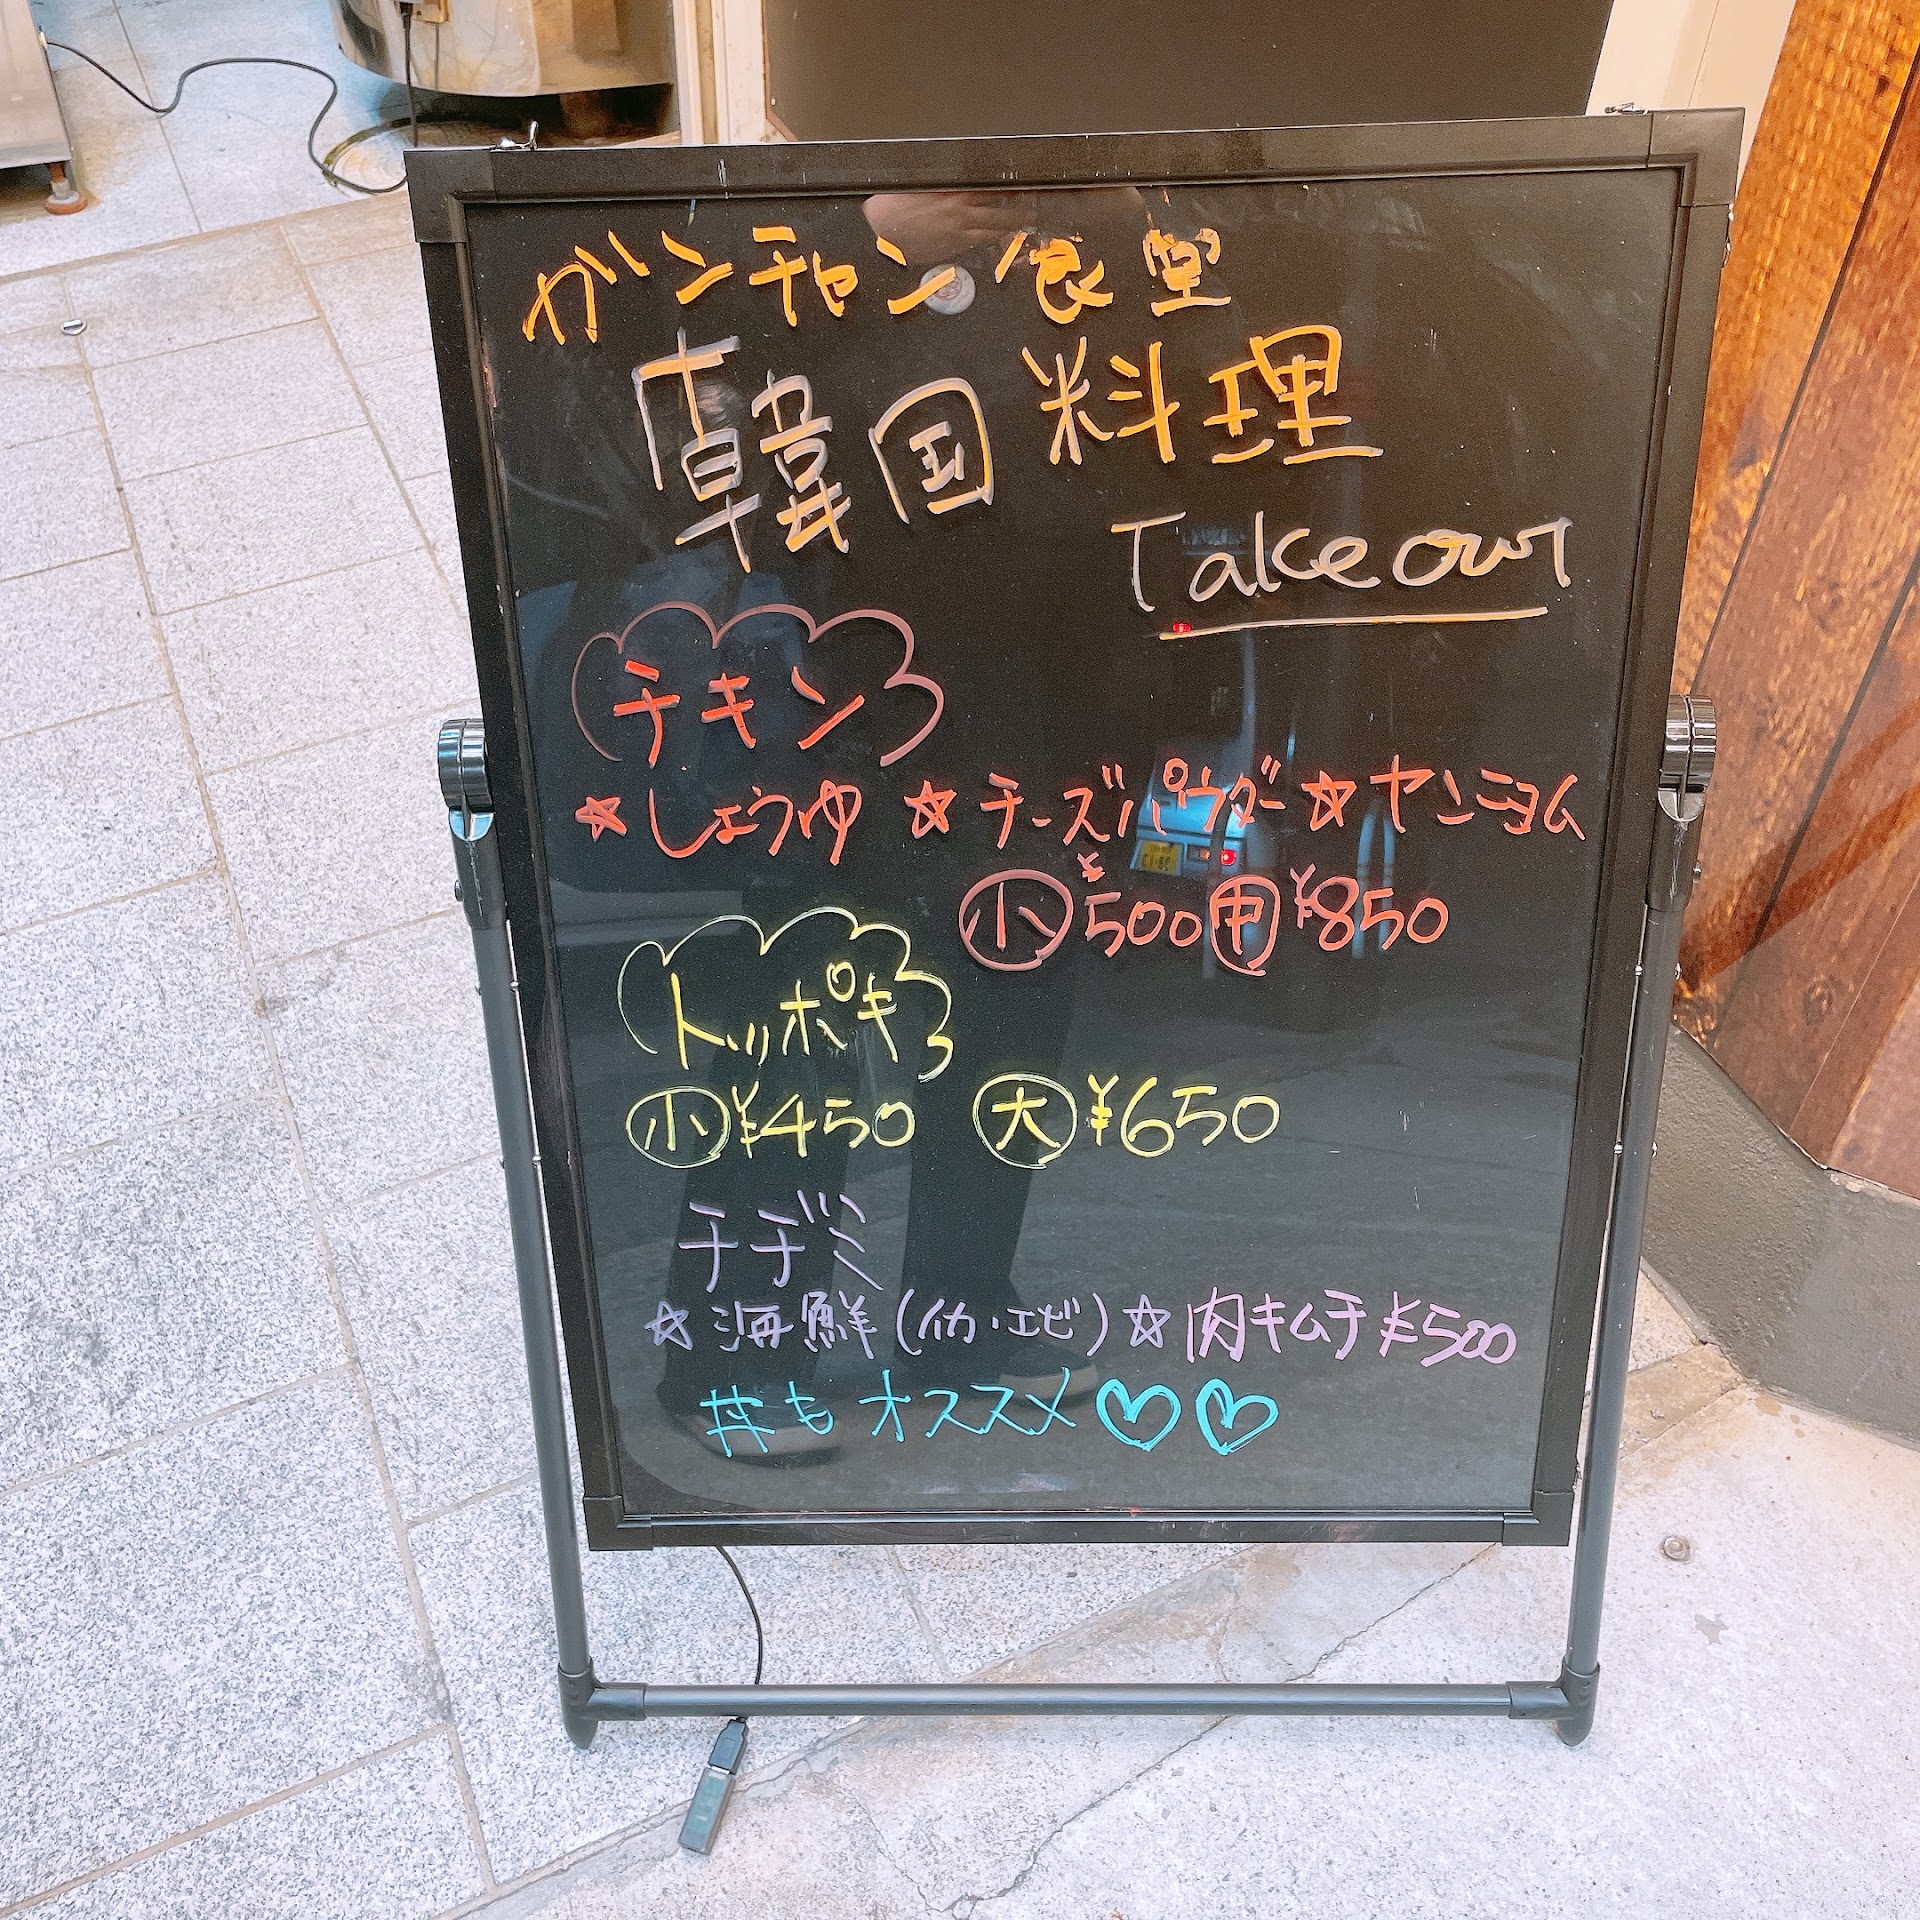 ガンチャン食堂
韓国料理
Takeout
チキン
☆しょうゆ ☆チーズパウダー☆ヤンニョム
小 ¥500 中 ¥850
トッポキ
小 ¥450 大 ¥650
チヂミ
☆海鮮(イカ・エビ)☆肉キムチ ¥500
丼もオススメ♡♡